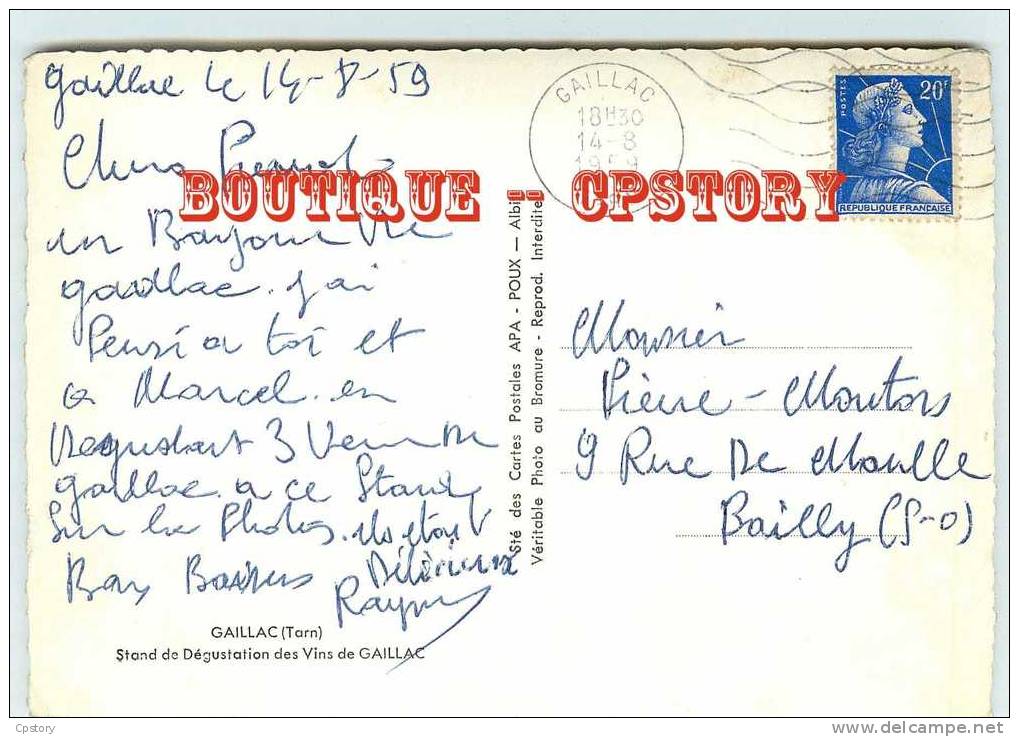 Gaillac le 14-8-59
GAILLAC
18H30
14-8
1959
POSTES
20F
REPUBLIQUE FRANÇAISE
BOUTIQUE -- CPSTORY
un Bonjour de
Gaillac. j'ai
Pensé a toi et
a Marcel. en
Degustant 3 Verre de
Gaillac. a ce Stand
Sur la Photos. ils étais
Délicieux
Bons Baisers
Raymond
GAILLAC (Tarn)
Stand de Dégustation des Vins de GAILLAC
Sté des Cartes Postales APA - POUX — Albi
Véritable Photo au Bromure - Reprod. Interdite
Monsieur
Pierre - Moutors
9 Rue De Maulle
Bailly (S-O)
Cpstory
http://cpstory.delcampe.net